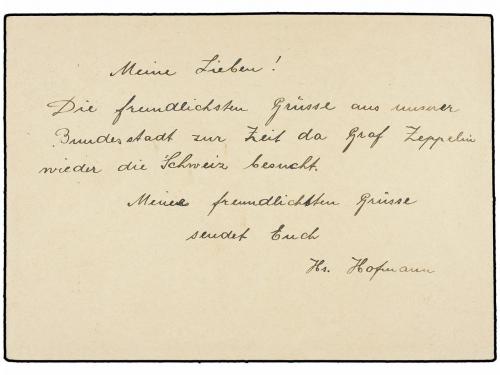 Meine Lieben!
Die freundlichsten Grüsse aus unserer
Bundesstadt zur Zeit da Graf Zeppelin
wieder die Schweiz besucht.
Meine freundlichsten Grüsse
sendet Euch
Hs. Hofmann